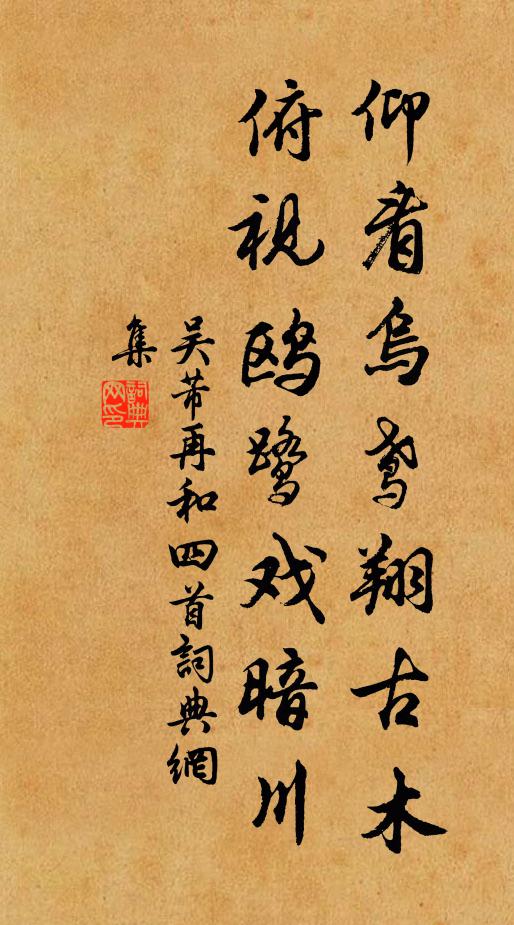 仰看乌鸢翔古木
俯视鸥鹭戏暗川
吴芾再和四首詞典網
集
詞典
网印